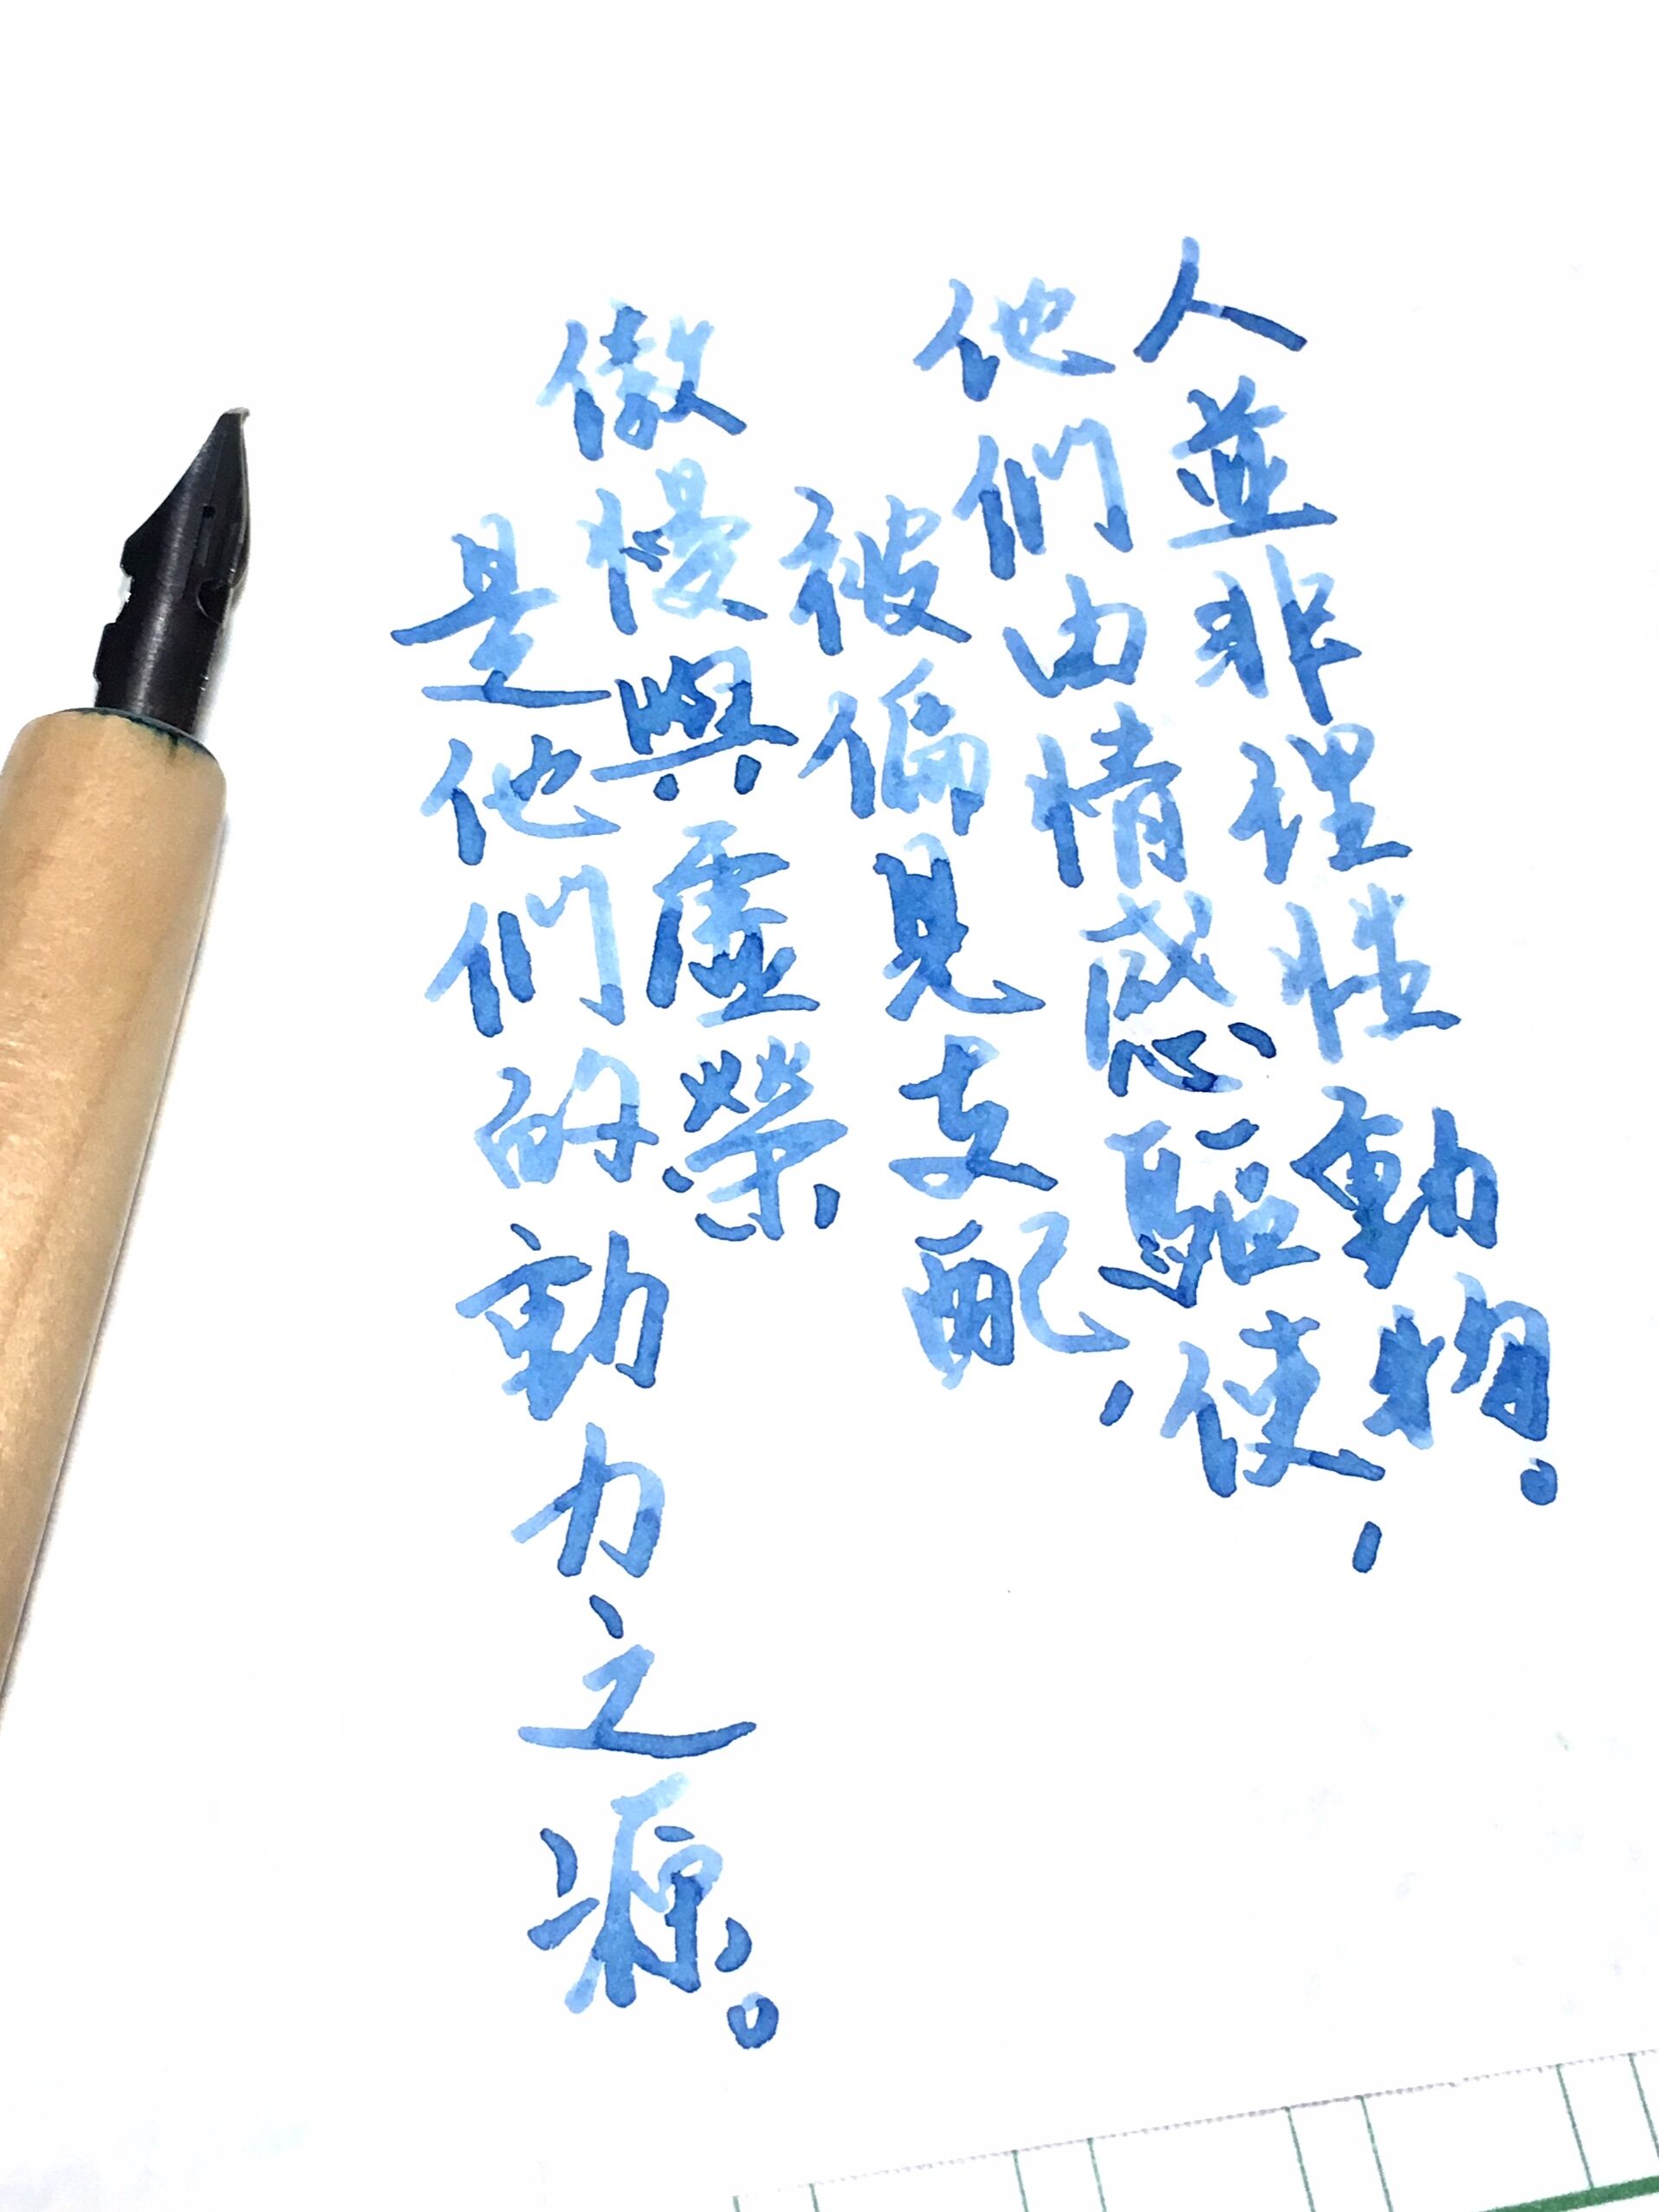 人並非理性動物。
他們由情感驅使，
被偏見支配，
傲慢與虛榮
是他們的動力之源。